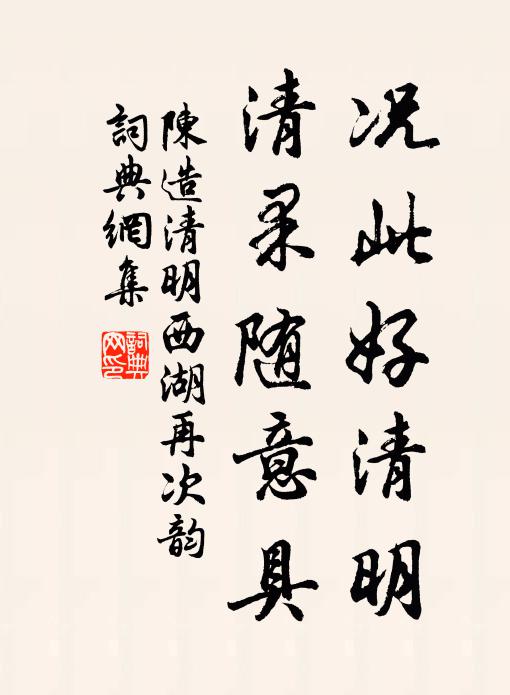 况此好清明
清果随意具
陳造清明西湖再次韵
詞典網集
詞典网印